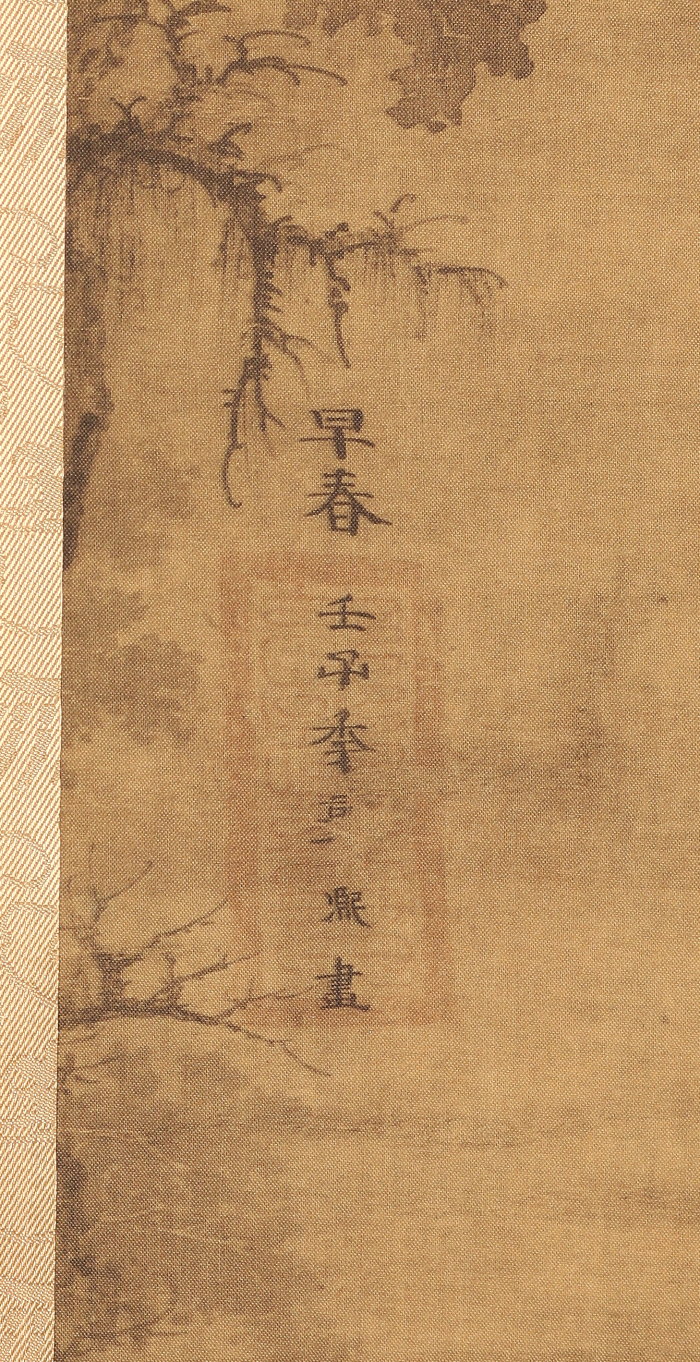 早春 壬子秊郭熙畫